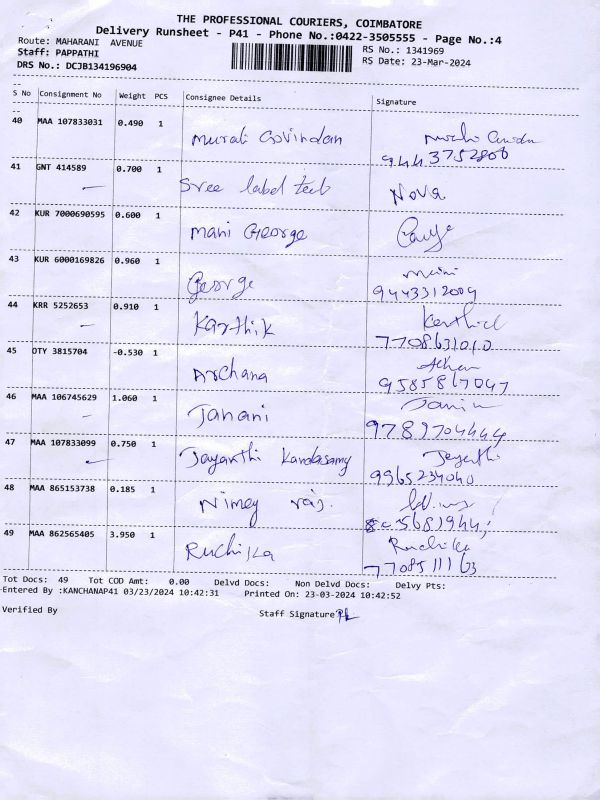 THE PROFESSIONAL COURIERS, COIMBATORE
Delivery Runsheet - P41 - Phone No.:0422-3505555 - Page No.:4
Route: MAHARANI AVENUE
RS No.: 1341969
Staff: PAPPATHI
RS Date: 23-Mar-2024
DRS No.: DCJB134196904
S No Consignment No Weight PCS Consignee Details Signature
40 MAA 107833031 0.490 1 Murali Govindan
9443752806
41 GNT 414589 0.700 1 Sree label tech Nova
42 KUR 7000690595 0.600 1 Mani George
43 KUR 6000169826 0.960 1 George Mani
9443312009
44 KRR 5252653 0.910 1 Karthik Karthick
7708631010
45 OTY 3815704 -0.530 1 Archana
9585867047
46 MAA 106745629 1.060 1 Janani
9789704444
47 MAA 107833099 0.750 1 Jayanthi Kandasamy Jayanthi
9965234040
48 MAA 865153738 0.185 1 Nimey raj.
49 MAA 862565405 3.950 1 Ruchika Ruchika
7708511163
Tot Docs: 49 Tot COD Amt: 0.00 Delvd Docs: Non Delvd Docs: Delvy Pts:
Entered By :KANCHANAP41 03/23/2024 10:42:31 Printed On: 23-03-2024 10:42:52
Verified By Staff Signature